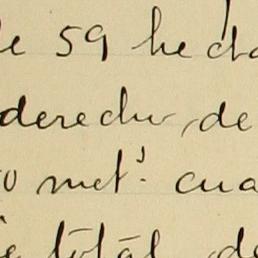 de 59 hecta
derecho, de
0 metˢ. cua
ie total de